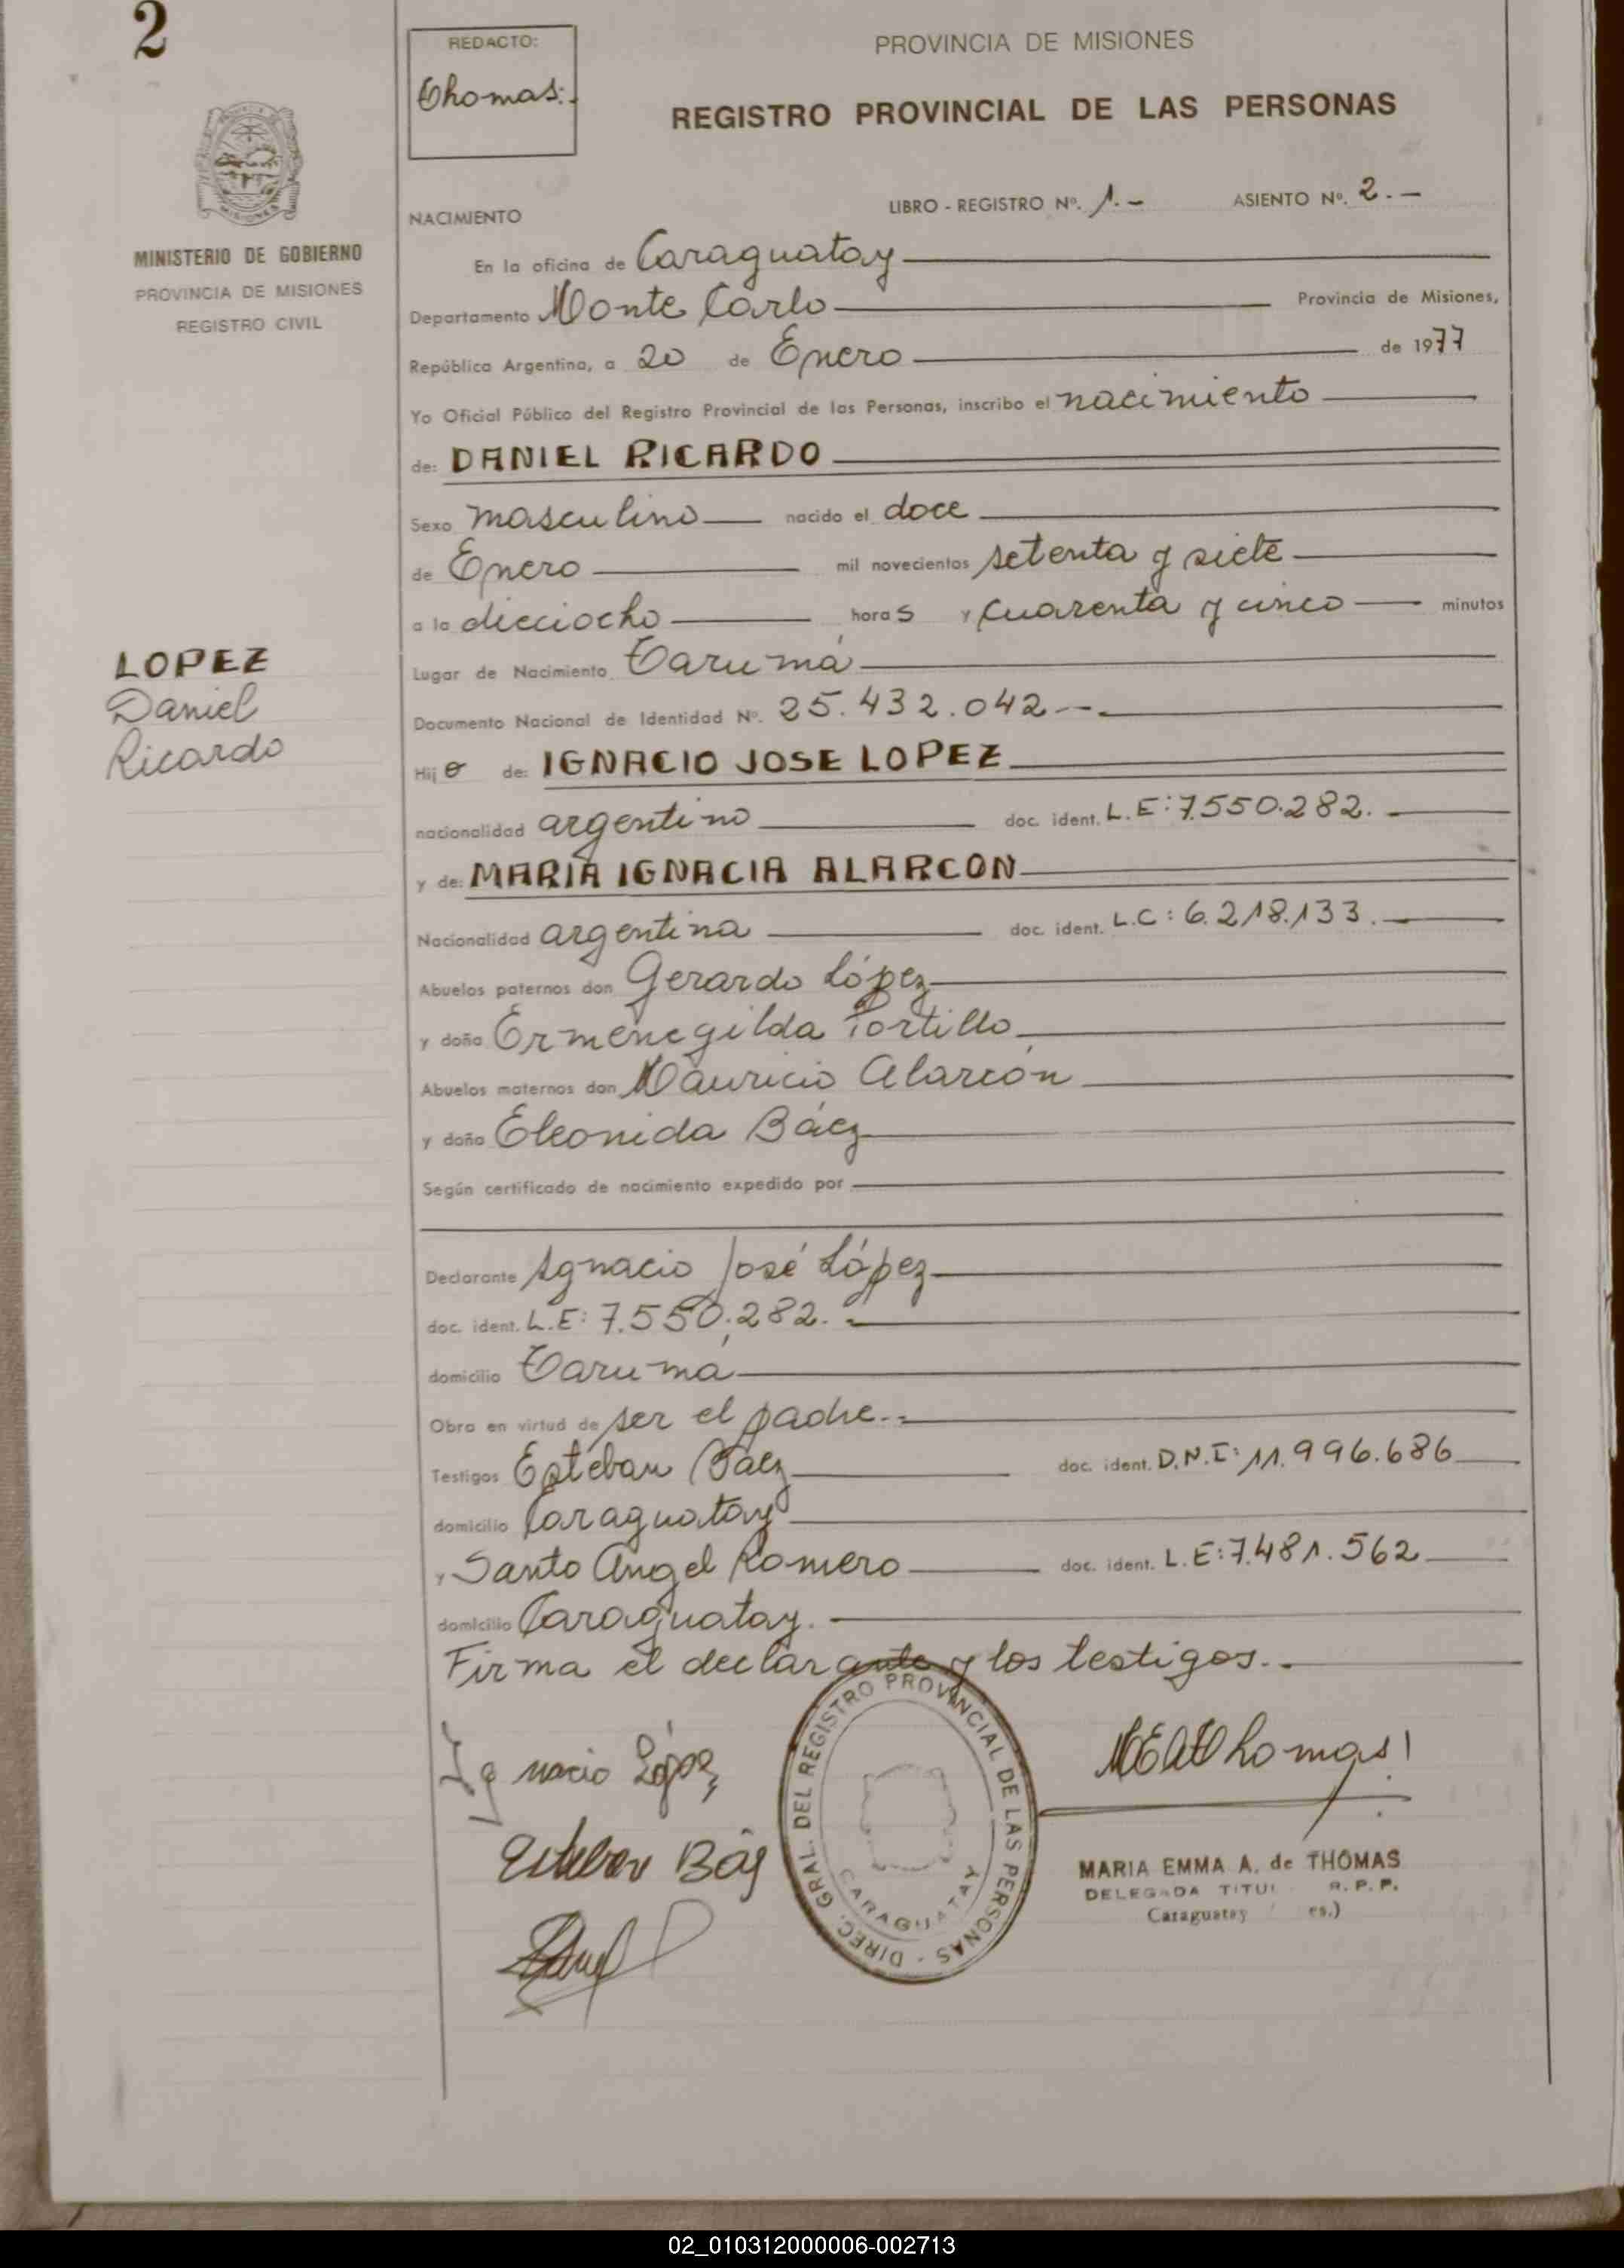 2
REDACTO:
Thomas.
PROVINCIA DE MISIONES
REGISTRO PROVINCIAL DE LAS PERSONAS
MISIONES
MINISTERIO DE GOBIERNO
PROVINCIA DE MISIONES
REGISTRO CIVIL
LOPEZ
Daniel
Ricardo
NACIMIENTO
LIBRO - REGISTRO Nº. 1.- ASIENTO Nº. 2.-
En la oficina de Caraguatay
Departamento Monte Carlo Provincia de Misiones,
República Argentina, a 20 de Enero de 1977
Yo Oficial Público del Registro Provincial de las Personas, inscribo el nacimiento
de: DANIEL RICARDO
Sexo masculino nacido el doce
de Enero mil novecientos setenta y siete
a la dieciocho horas y cuarenta y cinco minutos
Lugar de Nacimiento Tarumá
Documento Nacional de Identidad Nº. 25.432.042--.
Hijo de: IGNACIO JOSE LOPEZ
nacionalidad argentino doc. ident. L.E: 7.550.282.
y de: MARIA IGNACIA ALARCON
Nacionalidad argentina doc. ident. L.C: 6.218.133.
Abuelos paternos don Gerardo López
y doña Ermenegilda Portillo
Abuelos maternos don Mauricio Alarcón
y doña Eleonida Báez
Según certificado de nacimiento expedido por
Declarante Ignacio José López
doc. ident. L.E: 7.550.282.
domicilio Tarumá
Obra en virtud de ser el padre.-
Testigos Esteban Báez doc. ident. D.N.I: 11.996.686
domicilio Caraguatay
y Santo Angel Romero doc. ident. L.E: 7.481.562
domicilio Caraguatay.
Firma el declarante y los testigos.-
Ignacio López
Esteban Báez
MEAThomas
DIREC. GRAL. DEL REGISTRO PROVINCIAL DE LAS PERSONAS -
CARAGUATAY
MARIA EMMA A. de THOMAS
DELEGADA TITUL R. P. P.
Caraguatay es.)
02_010312000006-002713